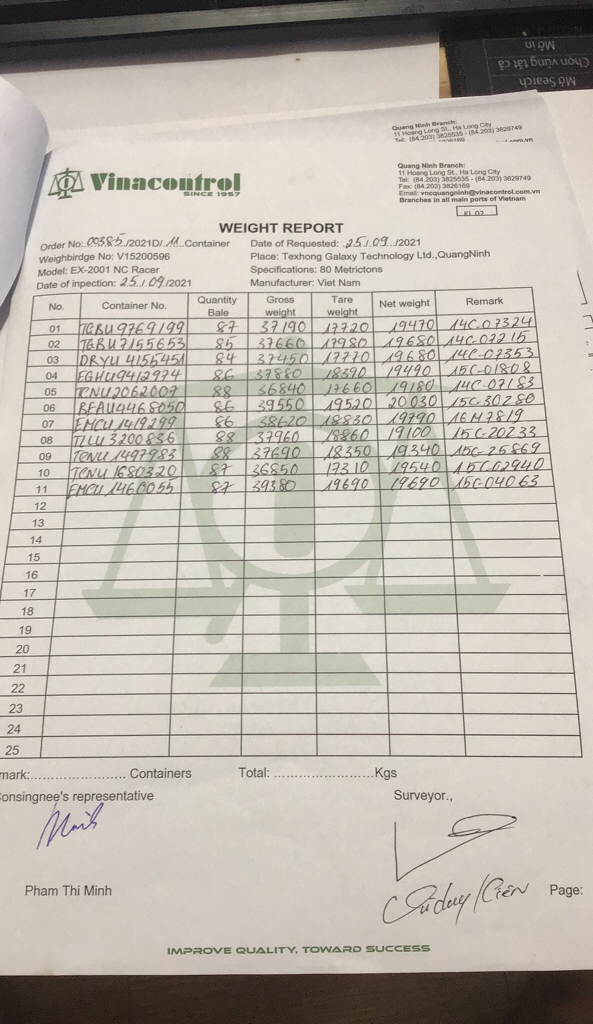 Mở Search
Chọn vùng tất cả
Mở in
Quang Ninh Branch:
11 Hoang Long St., Ha Long City
Tel: (84.203) 3825535 - (84.203) 3629749
Quang Ninh Branch:
11 Hoang Long St., Ha Long City
Tel: (84.203) 3825535 - (84.203) 3629749
Fax: (84.203) 3826169
Email: vncquangninh@vinacontrol.com.vn
Branches in all main ports of Vietnam
Vinacontrol
SINCE 1957
KL 02
WEIGHT REPORT
Order No: 00385/2021D/ 11 Container Date of Requested: 25/09/2021
Weighbirdge No: V15200596 Place: Texhong Galaxy Technology Ltd.,QuangNinh
Model: EX-2001 NC Racer Specifications: 80 Metrictons
Date of inpection: 25/09/2021 Manufacturer: Viet Nam
No. Container No. Quantity Bale Gross weight Tare weight Net weight Remark
01 TGBU9769199 87 37190 17720 19470 14C-07324
02 TGBU7155653 85 37660 17980 19680 14C-07215
03 DRYU4155451 84 37450 17770 19680 14C-07353
04 EGHU9412974 86 37880 18390 19490 15C-01808
05 TCNU2062007 88 36840 17660 19180 14C-07183
06 BEAU4468050 86 39550 19520 20030 15C-30280
07 EMCU1419299 86 38620 18830 19790 16M7819
08 TLLU3200836 88 37960 18860 19100 15C-20233
09 TCNU1497983 88 37690 18350 19340 15C-25869
10 TCNU1680320 87 36850 17310 19540 15C02940
11 EMCU1460055 87 39380 19690 19690 15C-04063
12
13
14
15
16
17
18
19
20
21
22
23
24
25
mark:........................ Containers Total: .........................Kgs
onsingnee's representative Surveyor.,
Pham Thi Minh Page:
IMPROVE QUALITY, TOWARD SUCCESS